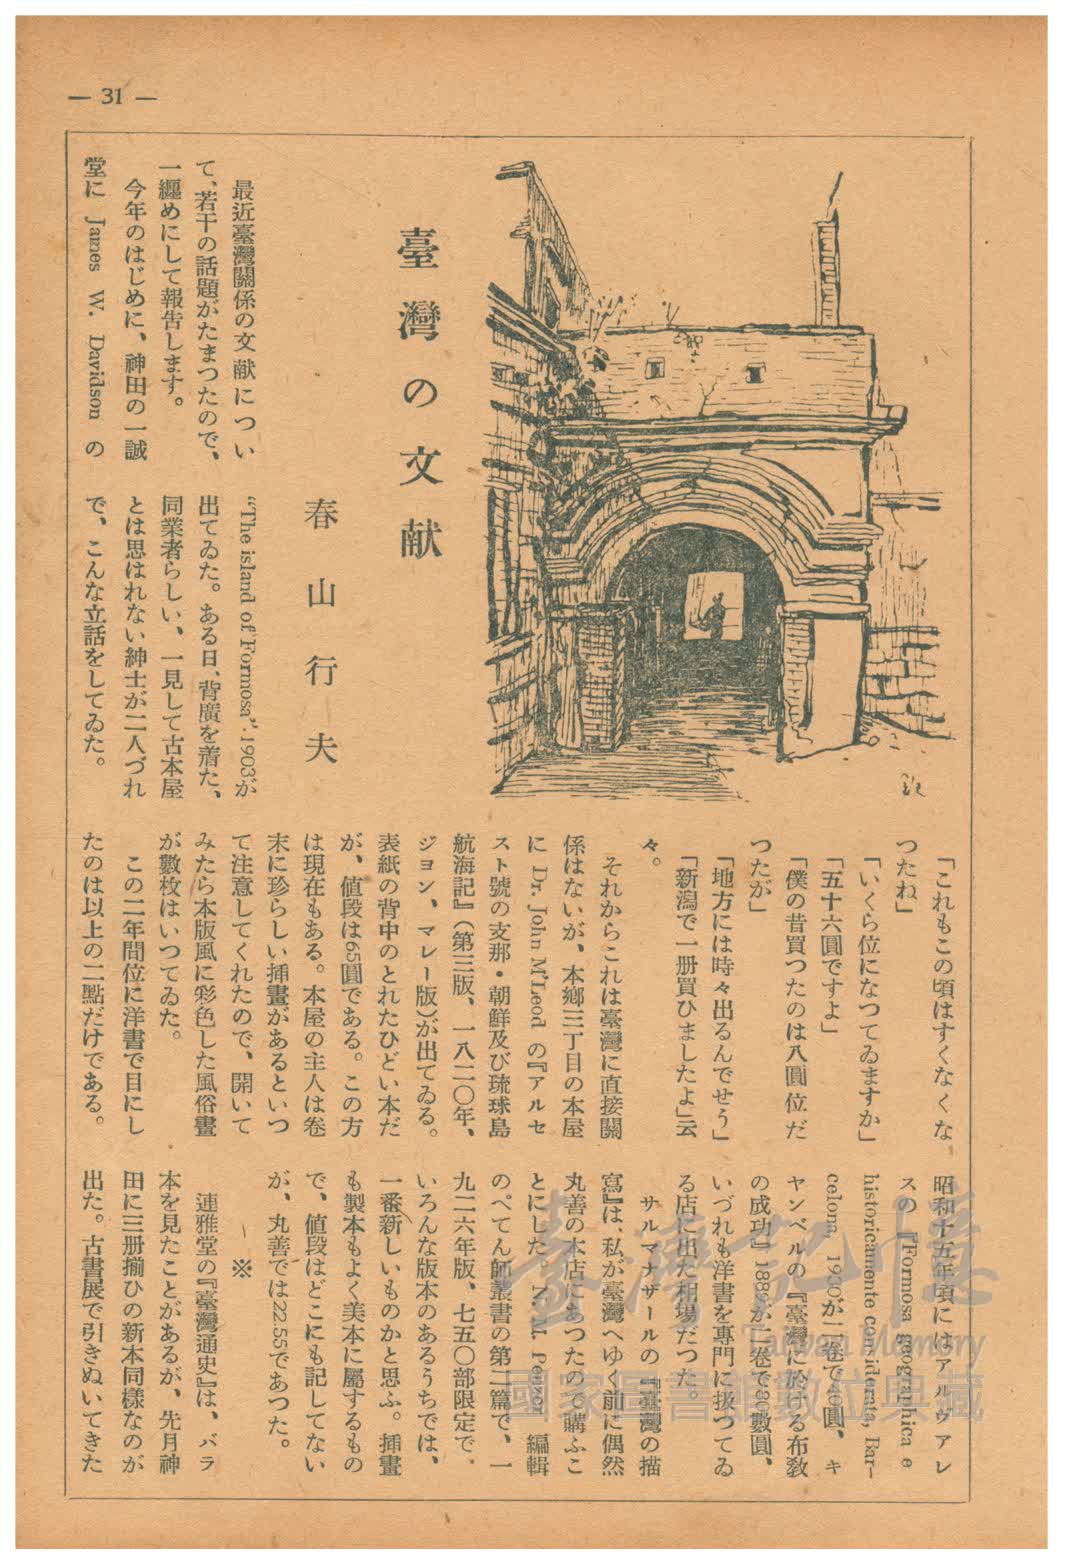 — 31 —
臺灣の文献
春山行夫
最近臺灣關係の文献につい
て、若干の話題がたまつたので、
一纒めにして報告します。
今年のはじめに、神田の一誠
堂に James W. Davidson の
“The island of Formosa”. 1903が
出てゐた。ある日、背廣を着た、
同業者らしい、一見して古本屋
とは思はれない紳士が二人づれ
で、こんな立話をしてゐた。
「これもこの頃はすくなくな
つたね」
「いくら位になつてゐますか」
「五十六圓ですよ」
「僕の昔買つたのは八圓位だ
つたが」
「地方には時々出るんでせう」
「新潟で一册買ひましたよ」云
々。
それからこれは臺灣に直接關
係はないが、本鄕三丁目の本屋
に Dr. John M'Leod の『アルセ
スト號の支那・朝鮮及び琉球島
航海記』(第三版、一八二〇年、
ジヨン、マレー版)が出てゐる。
表紙の背中のとれたひどい本だ
が、値段は65圓である。この方
は現在もある。本屋の主人は卷
末に珍らしい挿畫があるといつ
て注意してくれたので、開いて
みたら本版風に彩色した風俗畫
が數枚はいつてゐた。
この二年間位に洋書で目にし
たのは以上の二點だけである。
昭和十五年頃にはアルヴアレ
スの『Formosa geographica e
historicamente considerata, Bar-
celona, 1930が二卷で40圓、キ
ヤンベルの『臺灣に於ける布敎
の成功』1889が二卷で30數圓、
いづれも洋書を專門に扱つてゐ
る店に出た相場だつた。
サルマナザールの『臺灣の描
寫』は、私が臺灣へゆく前に偶然
丸善の本店にあつたので購ふこ
とにした。N. M. Penzer 編輯
のぺてん師叢書の第二篇で、一
九二六年版、七五〇部限定で、
いろんな版本のあるうちでは、
一番新しいものかと思ふ。挿畫
も製本もよく美本に屬するもの
で、値段はどこにも記してない
が、丸善では22.55であつた。
※
連雅堂の『臺灣通史』は、バラ
本を見たことがあるが、先月神
田に三册揃ひの新本同樣なのが
出た。古書展で引きぬいてきた
臺灣記憶
Taiwan Memory
國家圖書館數位典藏